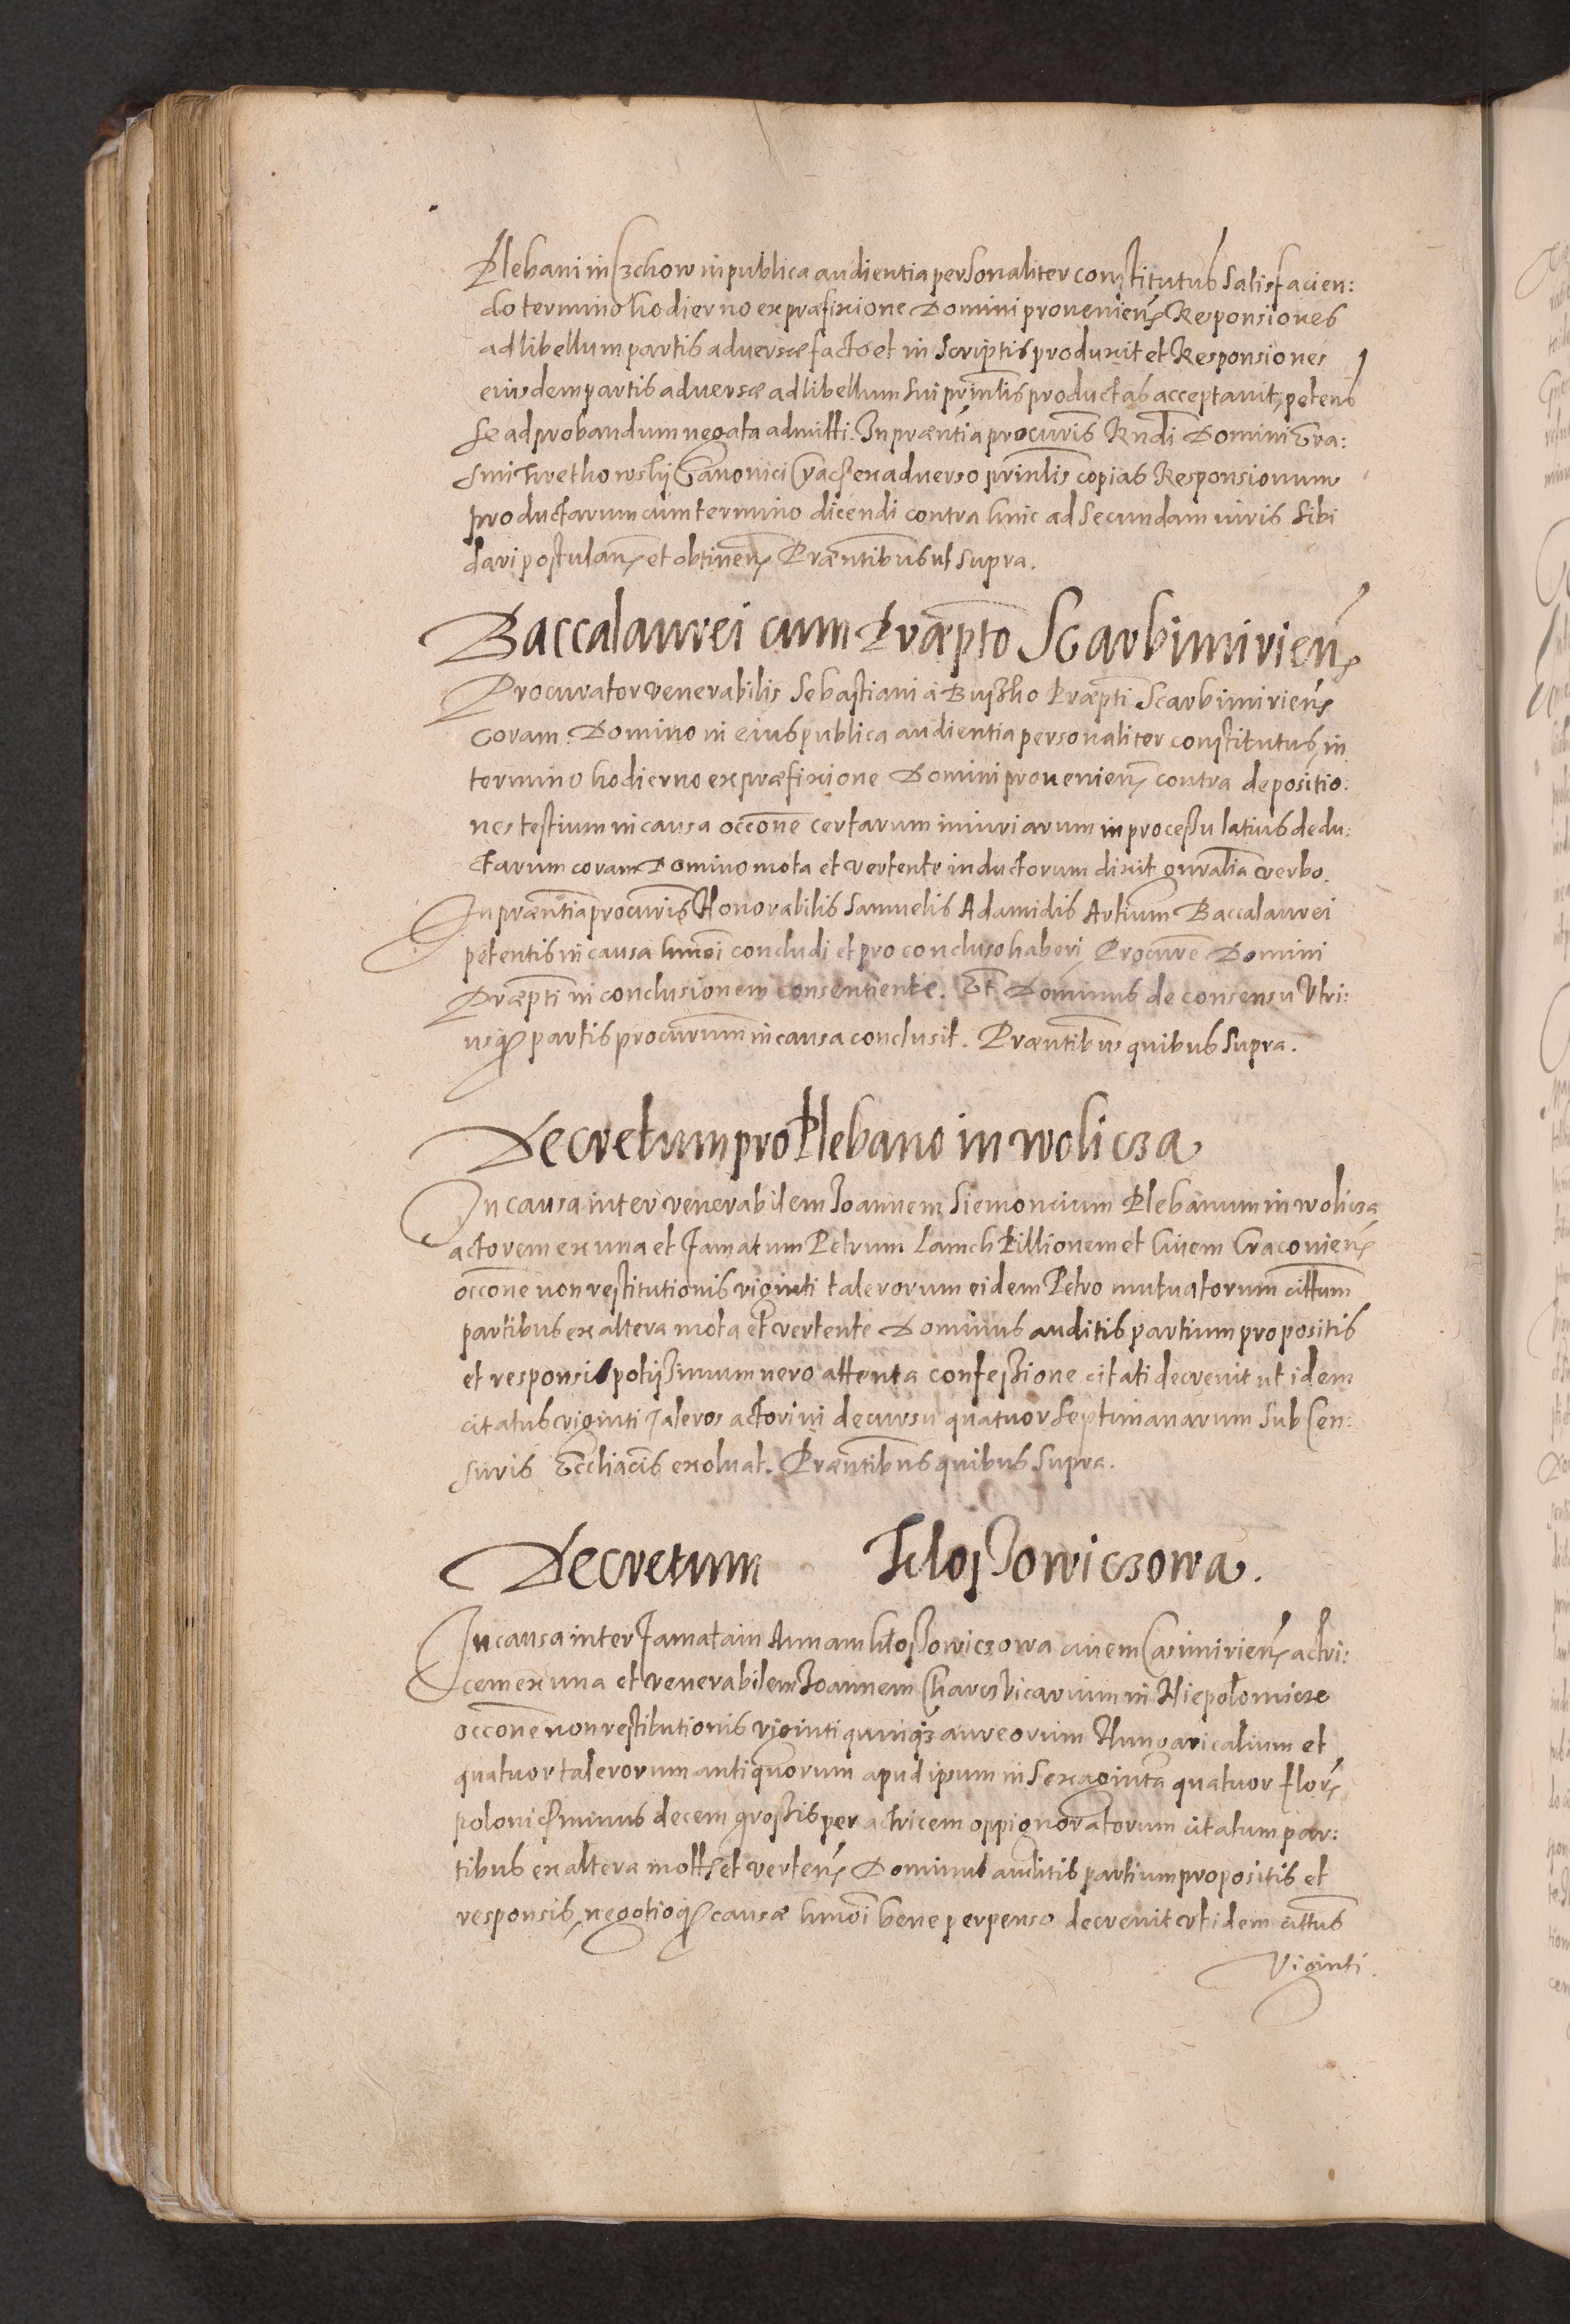 Plebani in Czchow in publica audientia personaliter constitutus Satisfacien:
do termino hodierno ex præfixione Domini provenien̄ Responsiones
ad libellum partis adversæ facto et in Scriptis produxit et Responsiones
eiusdem partis adversæ ad libellum sui prīnlis productas acceptavit, petens
se ad probandum negata admitti. In præn̄tia procur̄is Rn̄di Domini Era:
smi Canonici ex adverso prīnlis copias Responsionum
productarum cum termino dicendi contra hinc ad Secundam iuris Sibi
dari postulan̄ et obtinen̄ Præn̄tibus ut Supra.
Baccalaurei cum Præpto Scarbimirien̄
Procurator venerabilis Sebastiani à Buszko Præpti Scarbimirien̄
Coram Domino in eius publica audientia personaliter constitutus, in
termino hodierno ex præfixione Domini provenien̄ contra depositio:
nes testium in causa occōne certarum iniuriarum in processu latius dedu:
ctarum coram Domino mota et vertente inductorum dixit gn̄ralia verbo.
In præn̄tia procur̄is Honorabilis Samuelis Adamidis Artium Baccalaurei
petentis in causa hmōi concludi et pro concluso haberi Procur̄e Domini
Præpti in conclusionem consentiente. Et Dominus de consensu Utri:
usq partis procur̄um in causa conclusit. Præn̄tibus quibus Supra.
Decretum pro Plebano in Wolicza
In causa inter venerabilem Joannem Siemonium Plebanum in Wolicza
actorem ex una et famatum Petrum Lamch Pillionem et Civem Cracovien̄
occōne non restitutionis viginti talerorum eidem Petro mutuatorum cittum
partibus ex altera mota et vertente Dominus auditis partium propositis
et responsis potissimum vero attenta confessione citati decrevit ut idem
citatus viginti Taleros actori in decursu quatuor Septimanarum Sub Cen:
suris Eccliācis exolvat. Præn̄tibus quibus Supra.
Decretum Klossowiczowa.
In causa inter famatam Annam Klossowiczowa civem Casimirien̄ actri:
cem ex una et venerabilem Joannem vicarium in Niepolomicze
occōne non restitutionis viginti quinq aureorum Hungaricalium et
quatuor talerorum antiquorum apud ipsum in Sexaginta quatuor flor̄
polonic minus decem grossis per actricem oppignoratorum citatum par:
tibus ex altera mota et verten̄ Dominus auditis partium propositis et
responsis, negotioq causæ hmōi bene perpenso decrevit ut idem cittus
Viginti.